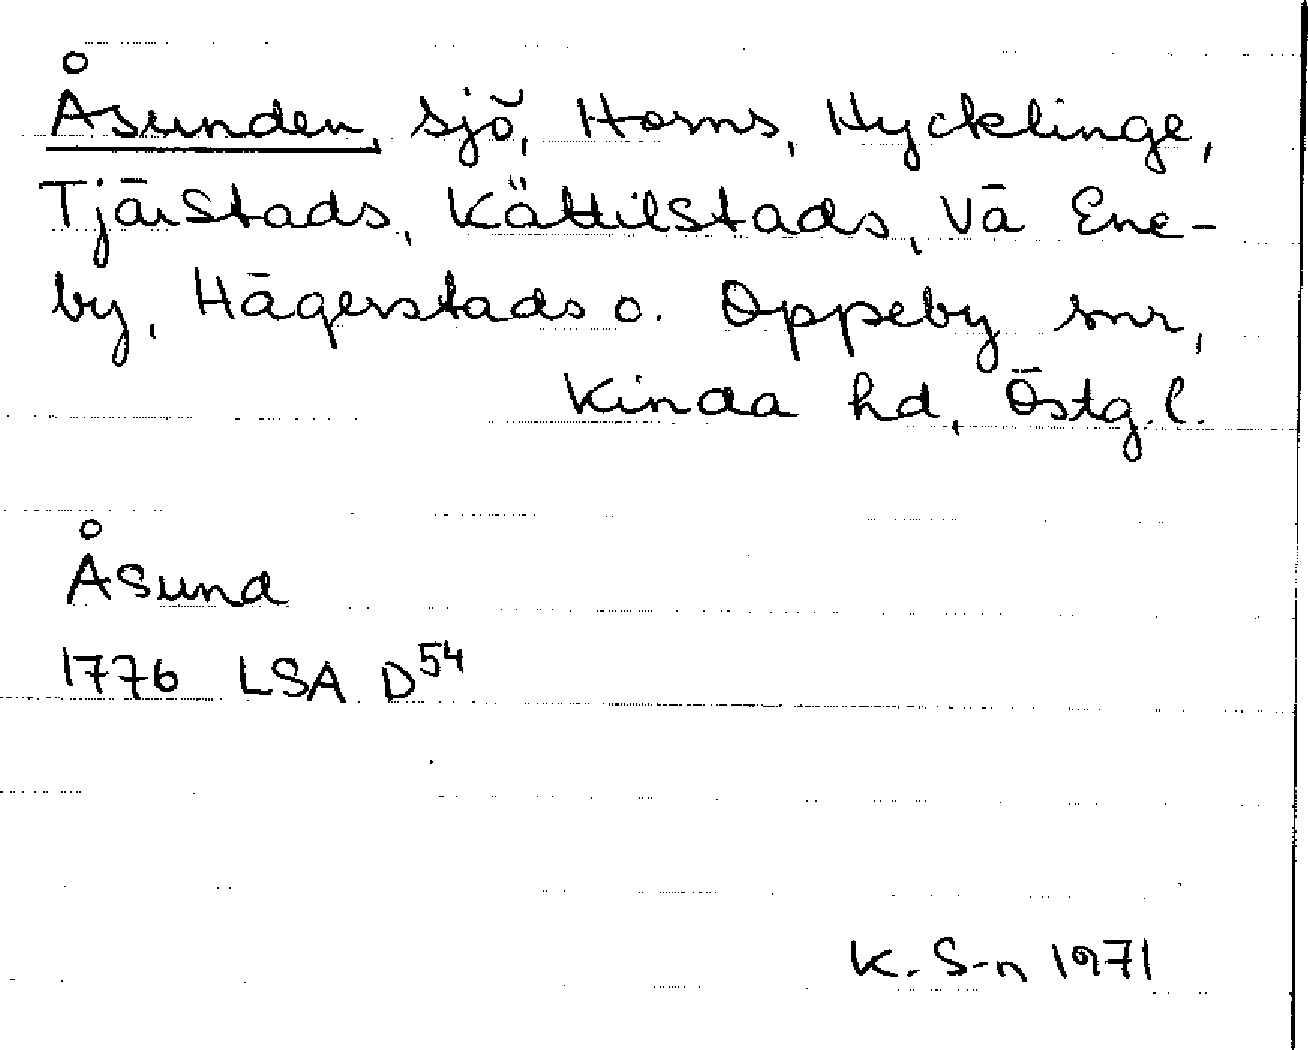 Åsunden, sjö, Horns, Hycklinge,
Tjärstads, Kättilstads, Vä Ene-
by, Hägerstads o. Oppeby snr,
Kinda hd, Östg.l.
Åsund
1776 LSA D54
K. S-n 1971